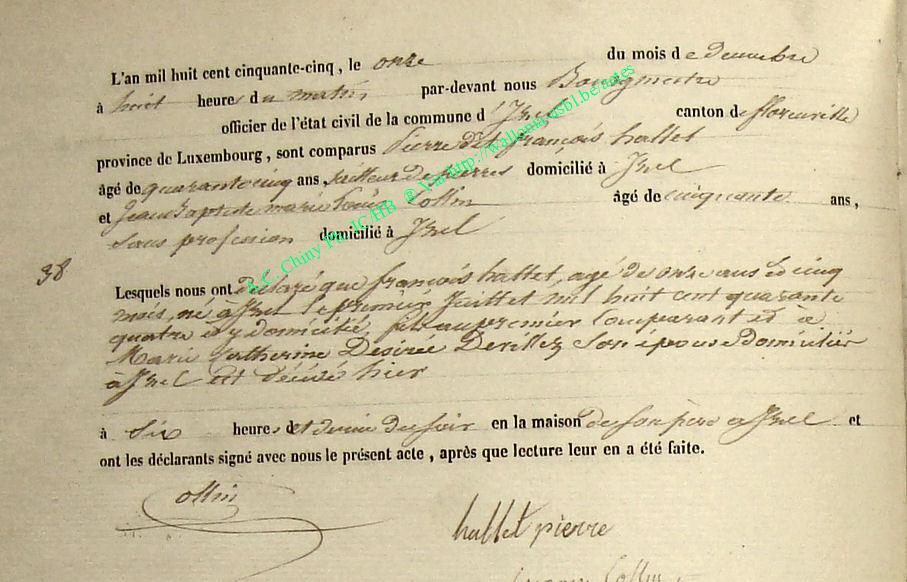 L'an mil huit cent cinquante-cinq, le onze du mois de decembre
à huit heures du matin par-devant nous Bourgmestre
officier de l'état civil de la commune d'Izel canton de florenville
province de Luxembourg, sont comparus Pierre dit françois hallet
âgé de quarante cinq ans, tailleur de pierres domicilié à Izel
et Jean Baptiste marie Louis Collin âgé de cinquante ans,
Sans profession domicilié à Izel
38
Lesquels nous ont declaré que françois hallet, agé de onze ans et cinq
mois, né à Izel le premier Juillet mil huit cent quarante
quatre et y domicilié, fils au premier Comparant et à
Marie Catherine Desirée Son épouse domiciliés
à Izel est décédé hier
à Six heures et demie du soir en la maison de son père à Izel et
ont les déclarants signé avec nous le présent acte, après que lecture leur en a été faite.
Collin
hallet pierre
Collin
A.C. Chiny Ph. JC/HB @ Via http://wallonia-asbl.be/actes